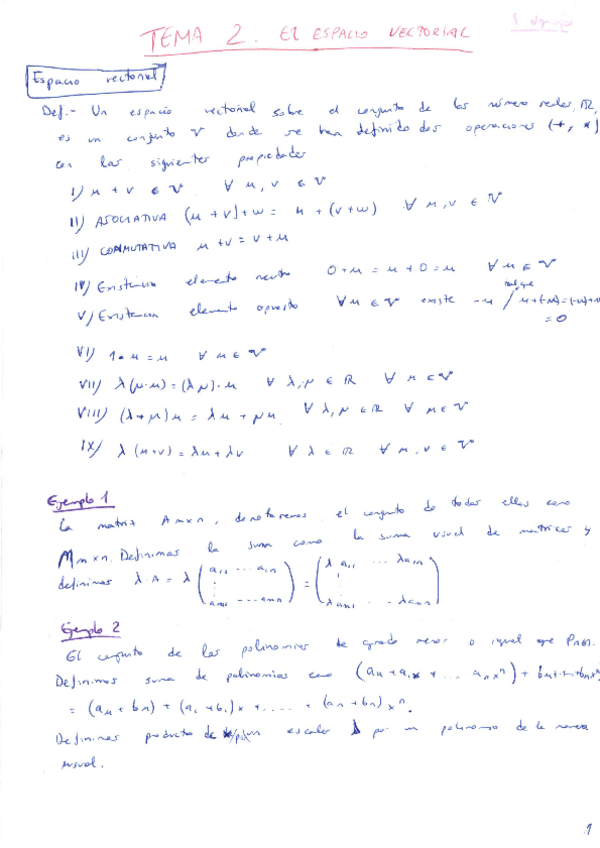 TEMA 2. El ESPACIO VECTORIAL
Espacio vectorial
Def.- Un espacio vectorial sobre el conjunto de los número reales, ℝ,
es un conjunto V donde se han definido dos operaciones (+, *)
con las siguientes propiedades
I) u + v ∈ V ∀ u, v ∈ V
II) ASOCIATIVA (u + v) + w = u + (v + w) ∀ u, v ∈ V
III) CONMUTATIVA u + v = v + u
IV) Existencia elemento neutro 0 + u = u + 0 = u ∀ u ∈ V
V) Existencia elemento opuesto ∀ u ∈ V existe -u / tal que u + (-u) = (-u) + u
= 0
VI) 1 · u = u ∀ u ∈ V
VII) λ (μ · u) = (λ μ) · u ∀ λ, μ ∈ ℝ ∀ u ∈ V
VIII) (λ + μ) u = λu + μu ∀ λ, μ ∈ ℝ ∀ u ∈ V
IX) λ (u + v) = λu + λv ∀ λ ∈ ℝ ∀ u, v ∈ V
Ejemplo 1
La matriz A m×n, denotaremos el conjunto de todas ellas como
M m×n. Definimos la suma como la suma usual de matrices y
definimos λ · A = λ (a11 ... a1n ⋮ am1 ... amn) = (λ a11 ... λa1n ⋮ λam1 ... λamn)
Ejemplo 2
El conjunto de los polinomios de grado menor o igual que
Definimos suma de polinomios como
Definimos producto de un escalar λ por un polinomio de la manera
usual.
1